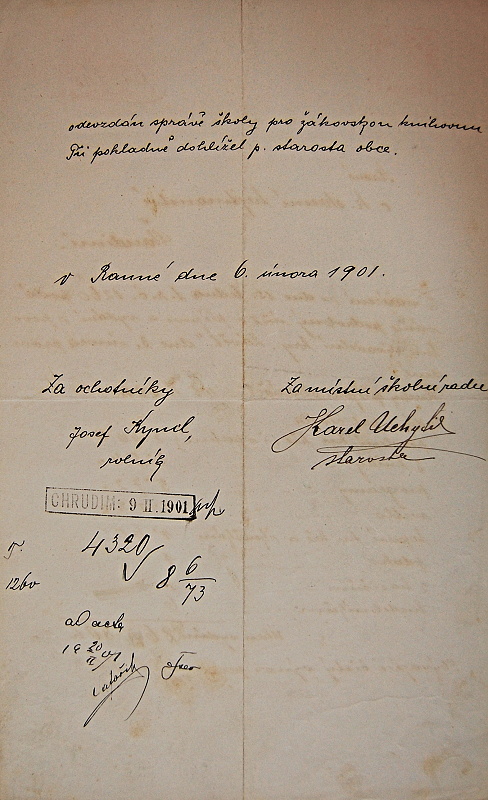 odevzdán správě školy pro žákovskou knihovnu
Při pokladně dohlížel p. starosta obce.
v Ranné dne 6. února 1901.
Za ochotníky
Josef
rolník
Za místní školní radu
Karel Uchytil
starosta
CHRUDIM: 9 II. 1901
4320
1260
8 6/73
ad acta